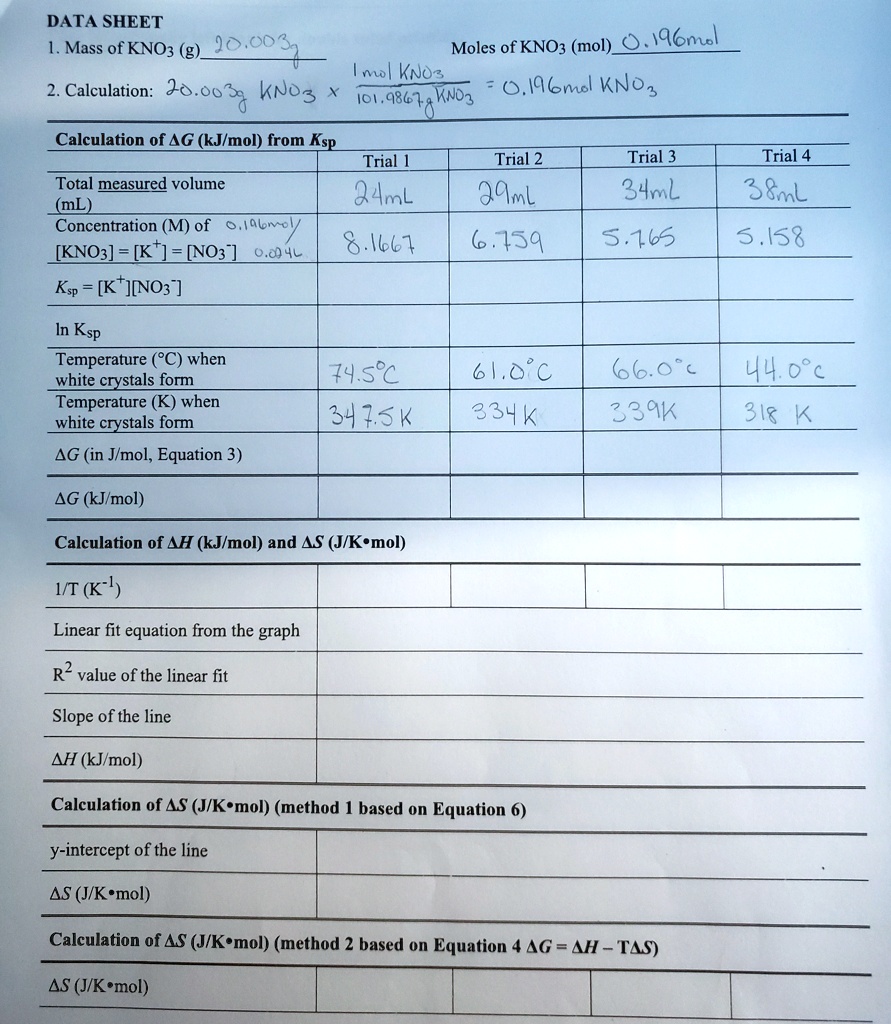 DATA SHEET
1. Mass of KNO3 (g) 20.003g Moles of KNO3 (mol) 0.196mol
2. Calculation: 20.003g KNO3 × 1mol KNO3 / 101.9867g KNO3 = 0.196mol KNO3
Calculation of ΔG (kJ/mol) from Ksp
Trial 1 Trial 2 Trial 3 Trial 4
Total measured volume
(mL) 24mL 29mL 34mL 38mL
Concentration (M) of 0.196mol/
[KNO3] = [K+] = [NO3-] 0.024L 8.1667 6.759 5.765 5.158
Ksp = [K+][NO3-]
ln Ksp
Temperature (°C) when
white crystals form 74.5°C 61.0°C 66.0°C 44.0°C
Temperature (K) when
white crystals form 347.5K 334K 339K 318 K
ΔG (in J/mol, Equation 3)
ΔG (kJ/mol)
Calculation of ΔH (kJ/mol) and ΔS (J/K•mol)
1/T (K-1)
Linear fit equation from the graph
R2 value of the linear fit
Slope of the line
ΔH (kJ/mol)
Calculation of ΔS (J/K•mol) (method 1 based on Equation 6)
y-intercept of the line
ΔS (J/K•mol)
Calculation of ΔS (J/K•mol) (method 2 based on Equation 4 ΔG = ΔH – TΔS)
ΔS (J/K•mol)